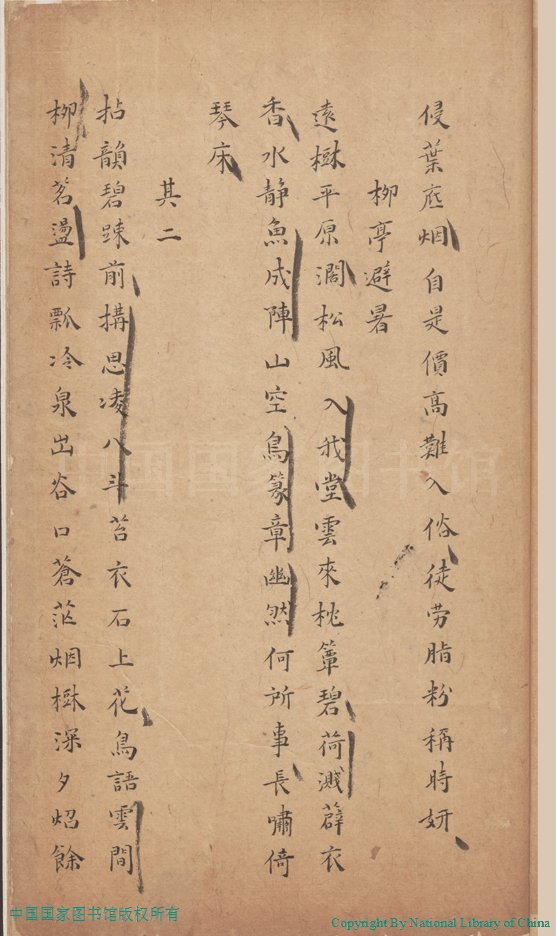 侵葉底烟自是價高難入俗徒劳脂粉稱時妍
柳亭避暑
遠樹平原濶松風入我堂雲來枕簟碧荷溅薜衣
香水静魚成陣山空鳥篆章幽然何所事長嘯倚
琴床
其二
拈韻碧疎前搆思凌八斗苔衣石上花鳥語雲間
柳清茗盪詩瓢冷泉出谷口蒼茫烟樹深夕炤餘
中国国家图书馆版权所有
Copyright By National Library of China